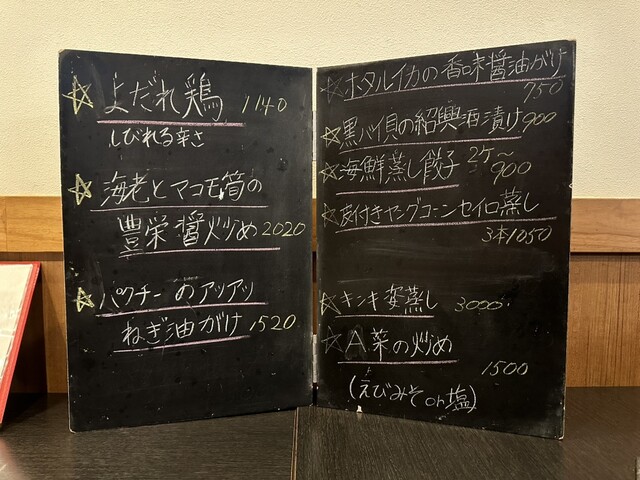 ☆よだれ鶏 1140
しびれる辛さ
☆海老とマコモ筍の
豊栄醤炒め 2020
☆パクチーのアツアツ
ねぎ油がけ 1520
☆ホタルイカの香味醤油がけ
750
☆黒バイ貝の紹興酒漬け 900
☆海鮮蒸し餃子 2ケ〜
900
☆皮付きヤングコーンセイロ蒸し
3本1050
☆キンキ姿蒸し 3000〜
☆A菜の炒め
1500
(えびみそor塩)